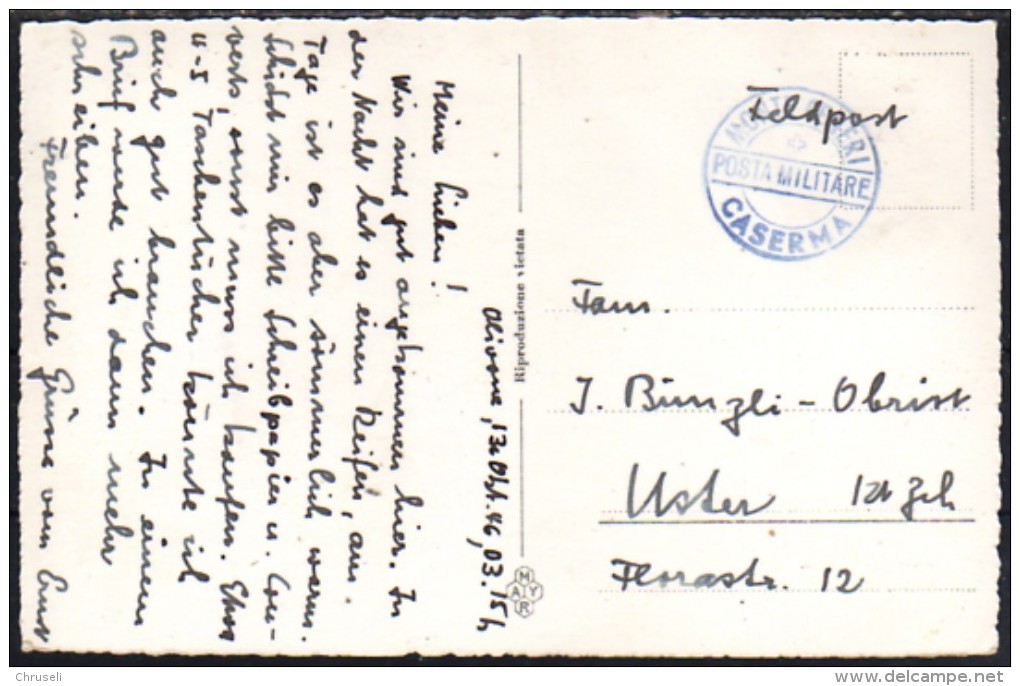 Olivone, 13. Okt. 46, 03.15 h
Meine Lieben!
Wir sind gut angekommen hier. In
der Nacht hat es einen Reifen, am
Tage ist es aber sommerlich warm.
Schickt mir bitte Schreibpapier u. Cou-
verts, sonst muss ich kaufen. Etwa
4-5 Taschentücher könnte ich
auch gut brauchen. In einem
Brief werde ich dann mehr
schreiben.
Freundliche Grüsse vom Ernst
Riproduzione vietata
MAYR
Feldpost
POSTA MILITARE
CASERMA
Fam.
J. Bünzli - Obrist
Uster Kt Zch
Florastr. 12
Chruseli
delcampe.net